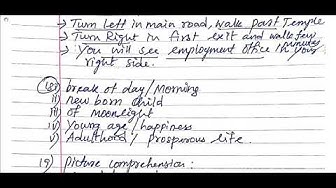 → Turn Left in main road, walk past Temple
→ Turn Right in first exit and walk few minutes
→ You will see employment office in your
right side.
i) break of day / Morning
ii) new born child
iii) of moonlight
iv) Young age / happiness
v) Adulthood / prosporous life.
19) Picture comprehension: